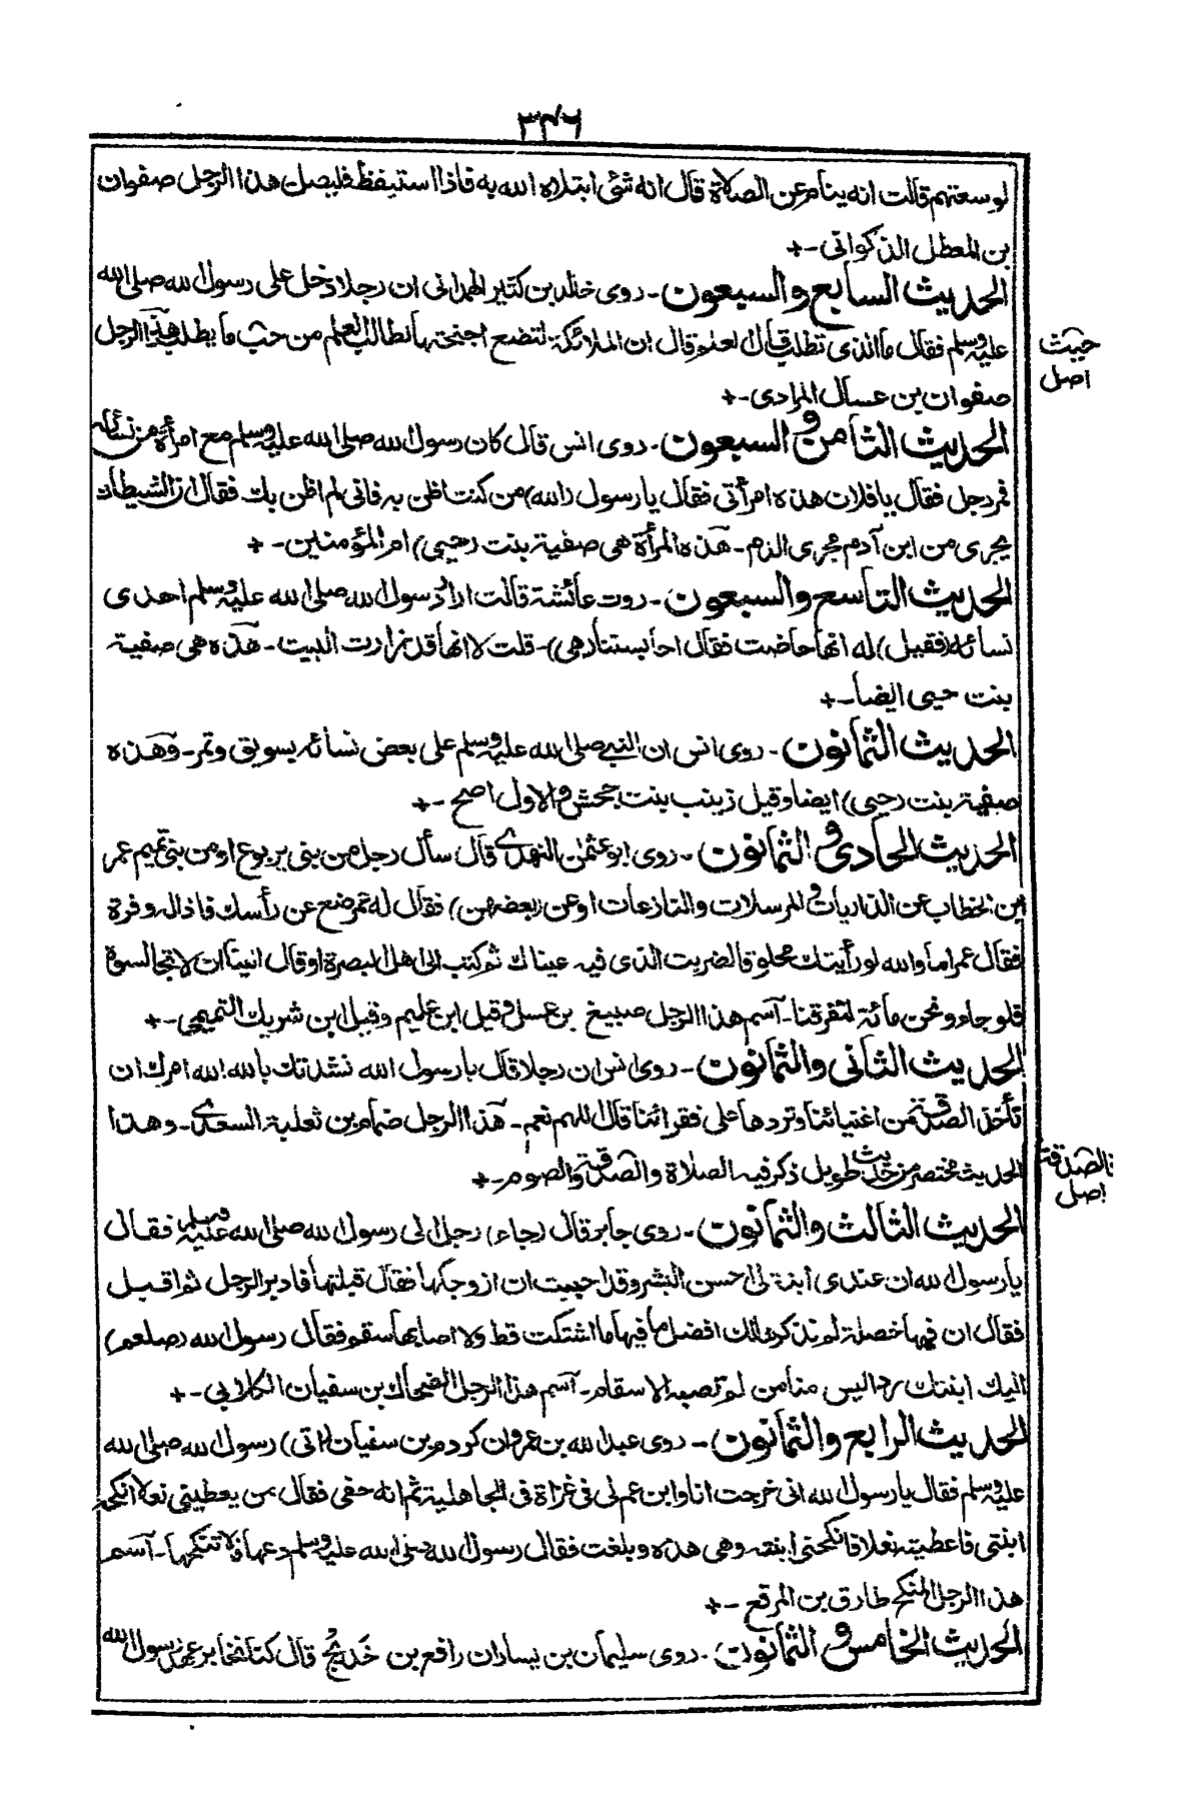 ٣٣٦
لوسعتهم قالت انه ينام عن الصلاة قال انه شئ ابتلاه الله به فاذا استيقظ فليصل هذا الرجل صفوان
بن المعطل الذكواني -+
الحديث السابع والسبعون - روى خالد بن كثير الهمداني ان رجلا دخل على رسول الله صلى الله
عليه وسلم فقال ما الذى تطلب قال العلم قال ان الملائكة لتضع اجنحتها لطالب العلم من حب ما يطلب هذا الرجل
حيث
اصل
صفوان بن عسال المرادى -+
الحديث الثامن والسبعون - روى انس قال كان رسول الله صلى الله عليه وسلم مع امرأة من نسائه
فمر رجل فقال يا فلان هذه امرأتى فقال يا رسول (الله) من كنت اظن به فانى لم اظن بك فقال ان الشيطان
يجرى من ابن آدم مجرى الدم - هذه المرأة هى صفية بنت (حيى) ام المؤمنين -+
الحديث التاسع والسبعون - روت عائشة قالت اراد رسول الله صلى الله عليه وسلم احدى
نسائه (فقيل) له انها حاضت فقال احابستنا (هى) - قلت لا انها قد زارت البيت - هذه هى صفية
بنت حيى ايضا -+
الحديث الثمانون - روى انس ان النبى صلى الله عليه وسلم على بعض نسائه بسويق وتمر - وهذه
صفية بنت (حيى) ايضا وقيل زينب بنت جحش والاول اصح -+
الحديث الحادى والثمانون - روى ابو عثمن النهدى قال سأل رجل من بنى يربوع او من بنى تميم عمر
ابن الخطاب عن الذاريات والمرسلات والنازعات او عن (بعضهن) فقال له عمر ضع عن رأسك فاذا له وفرة
فقال عمر اما والله لو رأيتك محلوقا لضربت الذى فيه عيناك ثم كتب الى اهل البصرة او قال الينا ان لا تجالسوه
فلو جاء ونحن مائة لتفرقنا - اسم هذا الرجل صبيغ بن عسل وقيل ابن عليم وقيل ابن شريك التميمى -+
الحديث الثانى والثمانون - روى انس ان رجلا قال يا رسول الله نشدتك بالله الله امرك ان
تأخذ الصدقة من اغنيائنا وتردها على فقرائنا قال اللهم نعم - هذا الرجل ضمام بن ثعلبة السعدى - وهذا
الحديث مختصر من حديث طويل ذكر فيه الصلاة والصدقة والصوم -+
فالصدقة
اصل
الحديث الثالث والثمانون - روى جابر قال (جاء) رجل الى رسول الله صلى الله عليه وسلم فقال
يا رسول الله ان عندى ابنة لى احسن البشر وقد احببت ان ازوجكها فقال قبلتها فادبر الرجل ثم اقبل
فقال ان فيها خصلة لم نذكر ذلك افضل ما فيها ما اشتكت قط ولا اصابها سقم فقال رسول الله (صلعم)
اليك ابنتك رد اليس منا من لم تصبه الاسقام - اسم هذا الرجل الضحاك بن سفيان الكلابى -+
الحديث الرابع والثمانون - روى عبد الله بن عمر وان كردم بن سفيان (اتى) رسول الله صلى الله
عليه وسلم فقال يا رسول الله انى خرجت انا وابن عم لى فى غزاة فى الجاهلية ثم انه حفى فقال من يعطينى نعلا انكحه
ابنتى فاعطيته نعلا فانكحنى ابنته وهى هذه وبلغت فقال رسول الله صلى الله عليه وسلم دعها فلا تنكحها - اسم
هذا الرجل المنكح طارق بن المرقع -+
الحديث الخامس والثمانون - روى سليمان بن يسار ان رافع بن خديج قال كنا نخابر على عهد رسول الله